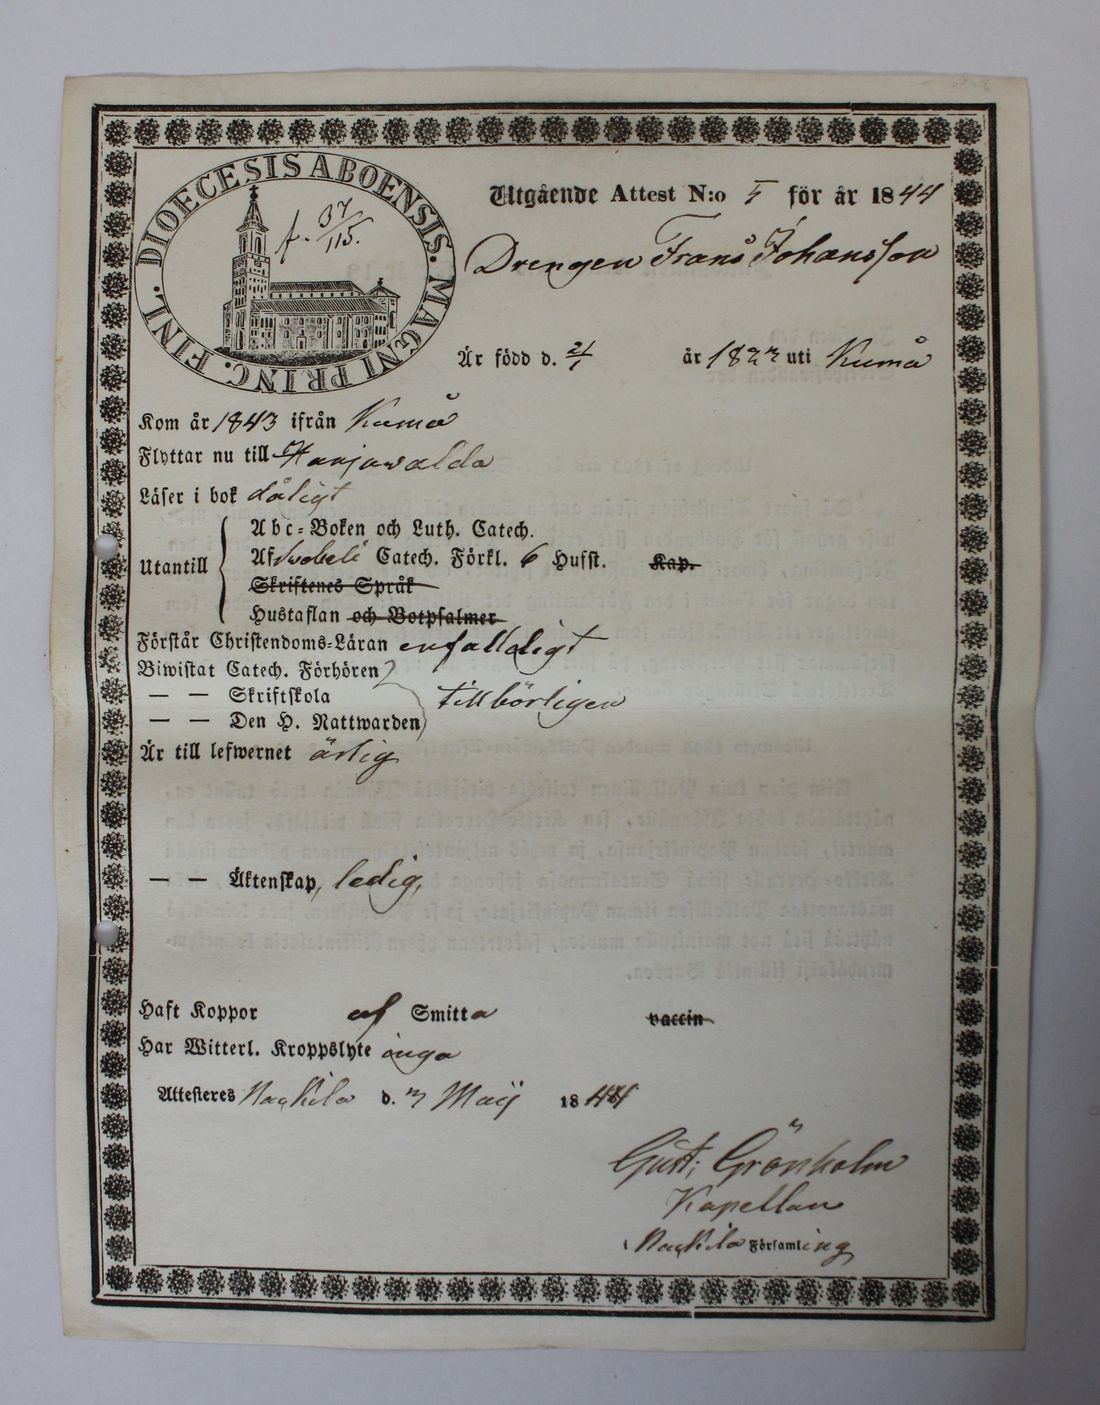 DIOECESIS ABOENSIS. MAGNI PRINC. FINL.
f. 37/115.
Utgående Attest N:o 5 för år 1844
Drengen Frans Johansson
Är född d. 21/1 år 1822 uti Kumå
Kom år 1843 ifrån Kumå
Flyttar nu till Harjawalda
Läser i bok dåligt
Utantill
Abc-Boken och Luth. Catech.
Af Svebeli Catech. Förkl. 6 Hufst. Kap.
Skriftenes Språk
Hustaflan och Botpsalmer
Förstår Christendoms-Läran enfaldigt
Biwistat Catech. Förhören
— — Skriftskola
tillbörligen
— — Den H. Nattwarden
Är till lefwernet ärlig
— — Äktenskap, ledig,
Haft Koppor af Smitta vaccin
Har Witterl. Kroppslyte inga
Attesteres Nackila d. 3 Maij 1844
Gust: Grönholm
Kapellan
i Nackila Församling